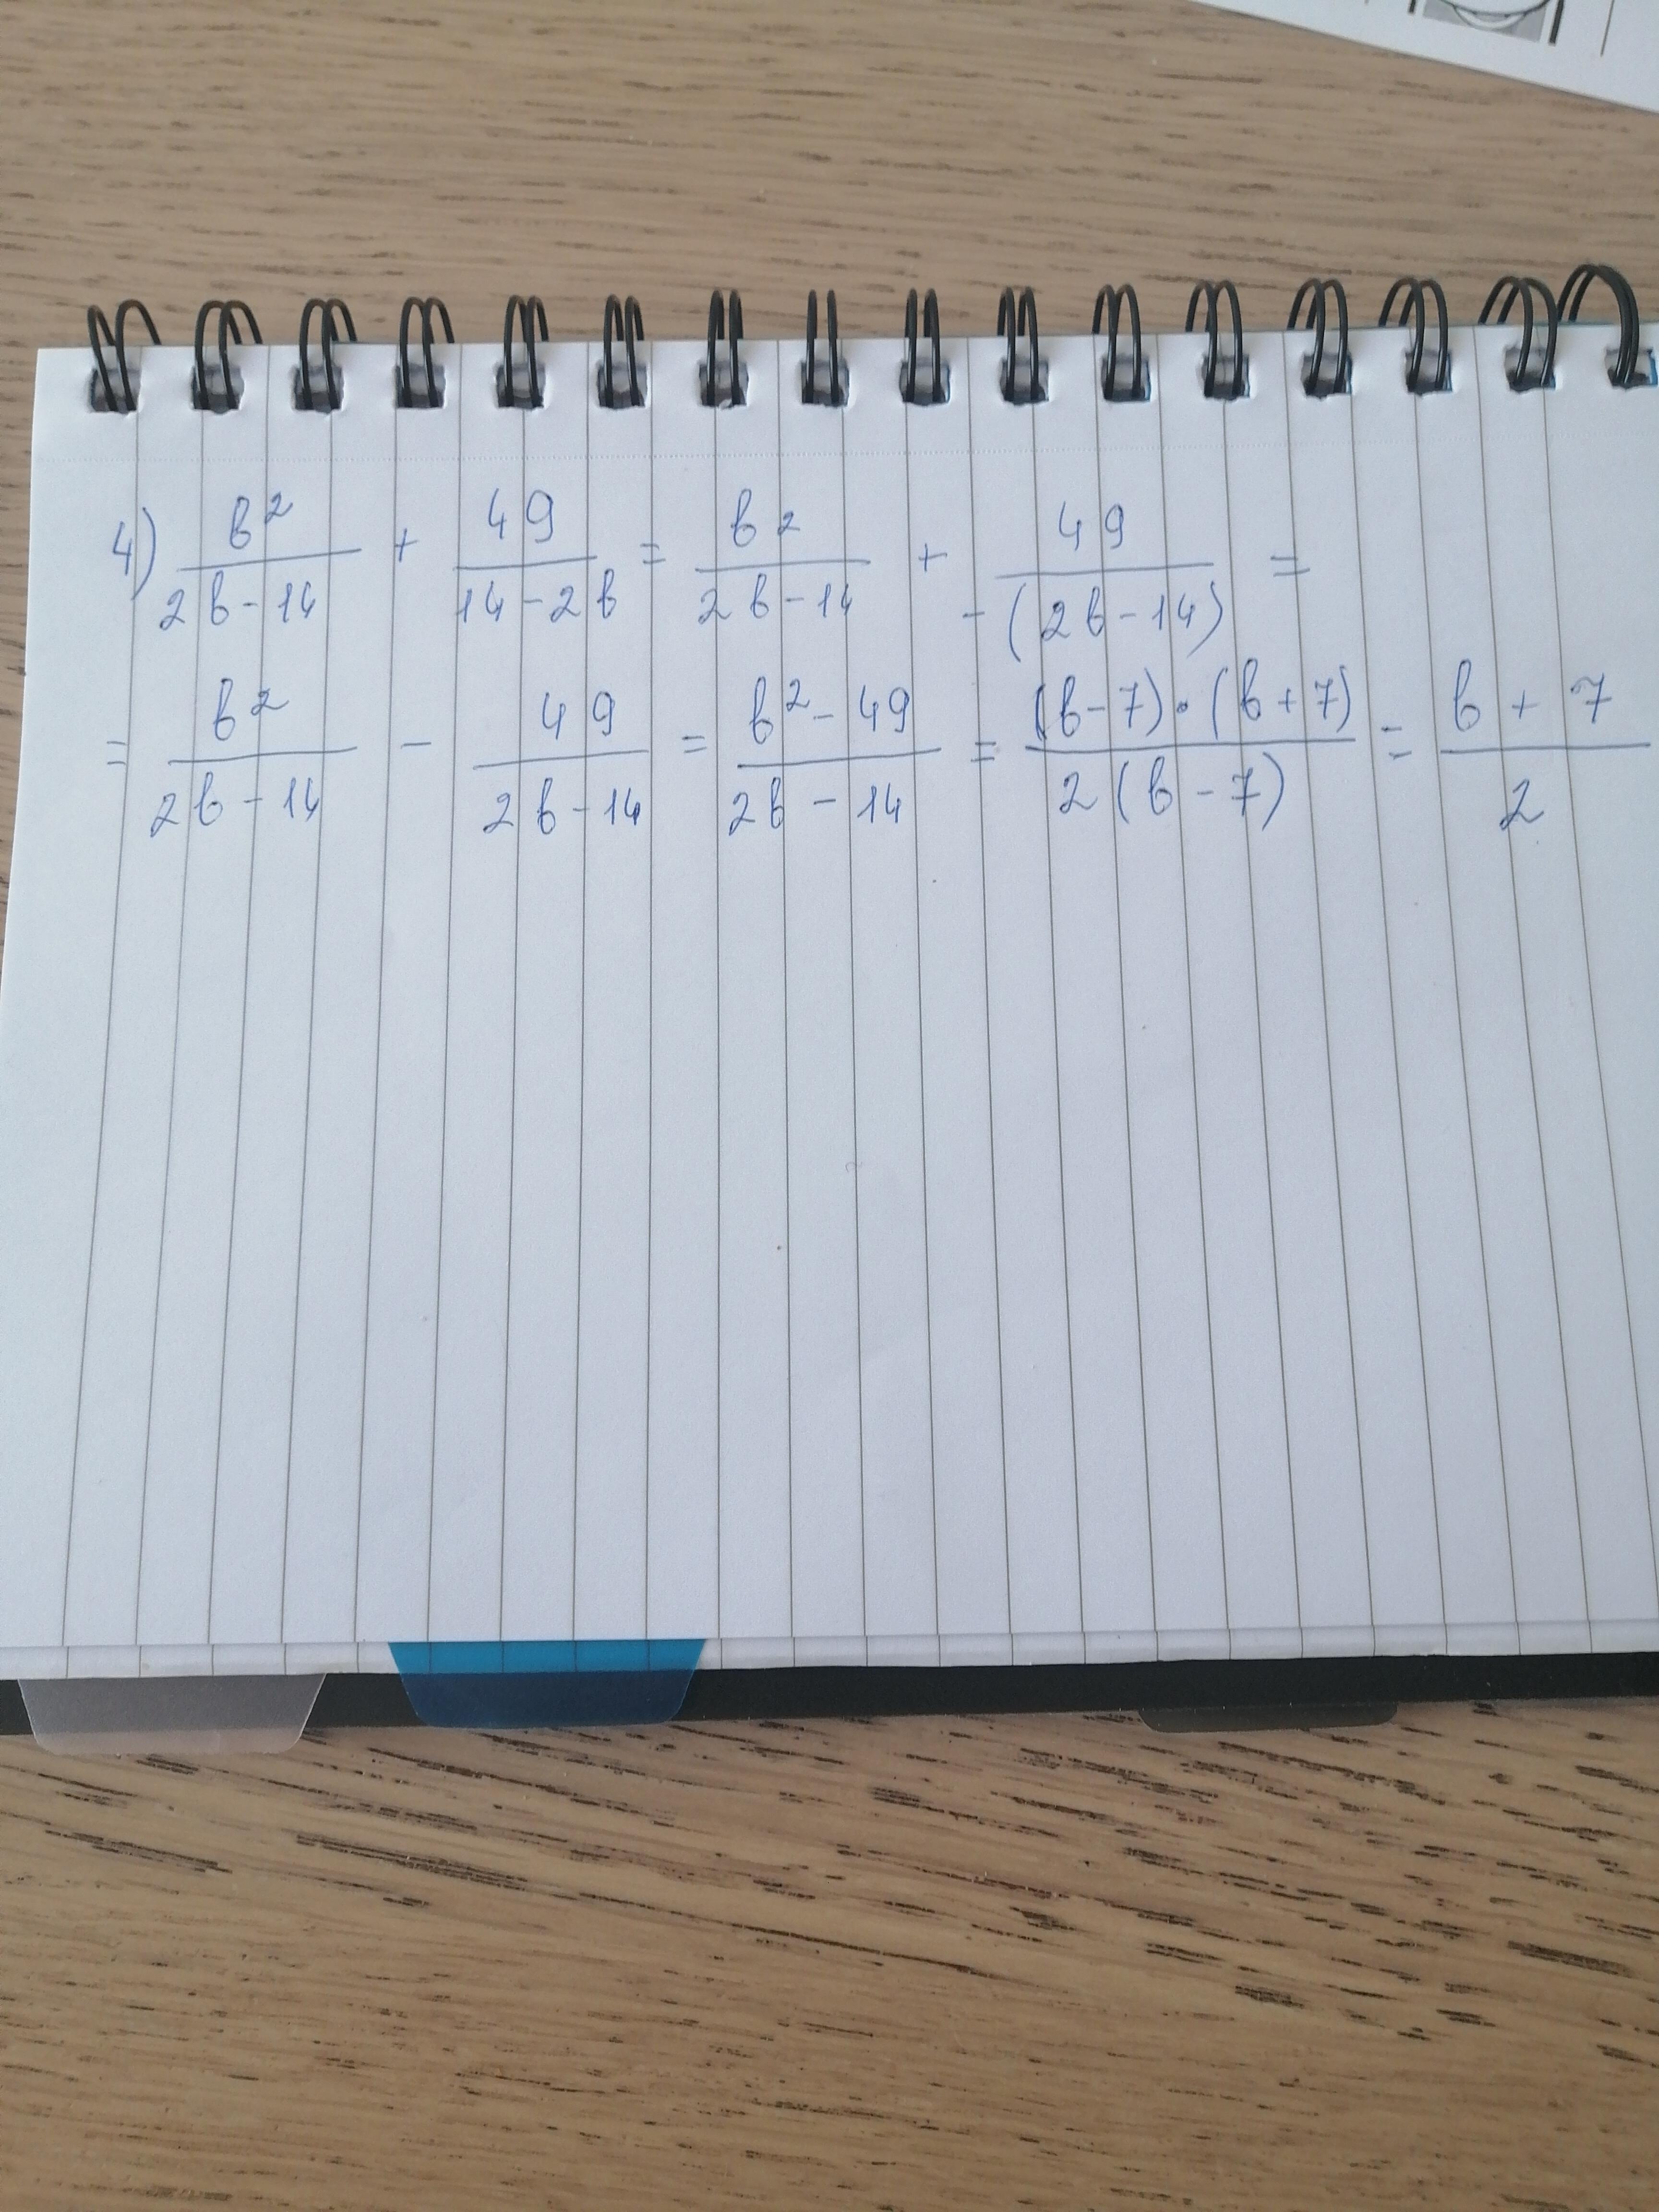 4) b²/(2b-14) + 49/(14-2b) = b²/(2b-14) + 49/(-(2b-14)) =
= b²/(2b-14) - 49/(2b-14) = (b²-49)/(2b-14) = ((b-7)·(b+7))/(2(b-7)) = (b+7)/2